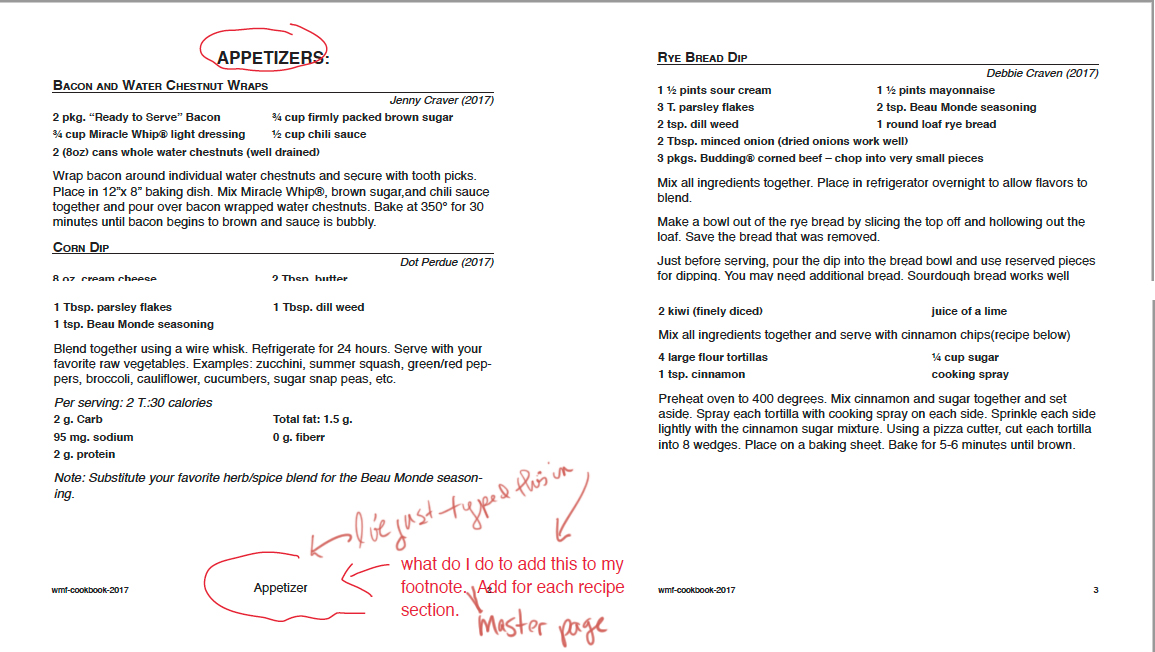 APPETIZERS:
BACON AND WATER CHESTNUT WRAPS
Jenny Craver (2017)
2 pkg. “Ready to Serve” Bacon ¾ cup firmly packed brown sugar
¾ cup Miracle Whip® light dressing ½ cup chili sauce
2 (8oz) cans whole water chestnuts (well drained)
Wrap bacon around individual water chestnuts and secure with tooth picks.
Place in 12”x 8” baking dish. Mix Miracle Whip®, brown sugar,and chili sauce
together and pour over bacon wrapped water chestnuts. Bake at 350° for 30
minutes until bacon begins to brown and sauce is bubbly.
CORN DIP
Dot Perdue (2017)
8 oz. cream cheese 2 Tbsp. butter
1 Tbsp. parsley flakes 1 Tbsp. dill weed
1 tsp. Beau Monde seasoning
Blend together using a wire whisk. Refrigerate for 24 hours. Serve with your
favorite raw vegetables. Examples: zucchini, summer squash, green/red pep-
pers, broccoli, cauliflower, cucumbers, sugar snap peas, etc.
Per serving: 2 T.:30 calories
2 g. Carb Total fat: 1.5 g.
95 mg. sodium 0 g. fiberr
2 g. protein
Note: Substitute your favorite herb/spice blend for the Beau Monde season-
ing.
I've just typed this in
what do I do to add this to my
footnote. Add for each recipe
section.
Master page
wmf-cookbook-2017 Appetizer 2
RYE BREAD DIP
Debbie Craven (2017)
1 ½ pints sour cream 1 ½ pints mayonnaise
3 T. parsley flakes 2 tsp. Beau Monde seasoning
2 tsp. dill weed 1 round loaf rye bread
2 Tbsp. minced onion (dried onions work well)
3 pkgs. Budding® corned beef – chop into very small pieces
Mix all ingredients together. Place in refrigerator overnight to allow flavors to
blend.
Make a bowl out of the rye bread by slicing the top off and hollowing out the
loaf. Save the bread that was removed.
Just before serving, pour the dip into the bread bowl and use reserved pieces
for dipping. You may need additional bread. Sourdough bread works well
2 kiwi (finely diced) juice of a lime
Mix all ingredients together and serve with cinnamon chips(recipe below)
4 large flour tortillas ¼ cup sugar
1 tsp. cinnamon cooking spray
Preheat oven to 400 degrees. Mix cinnamon and sugar together and set
aside. Spray each tortilla with cooking spray on each side. Sprinkle each side
lightly with the cinnamon sugar mixture. Using a pizza cutter, cut each tortilla
into 8 wedges. Place on a baking sheet. Bake for 5-6 minutes until brown.
wmf-cookbook-2017 3